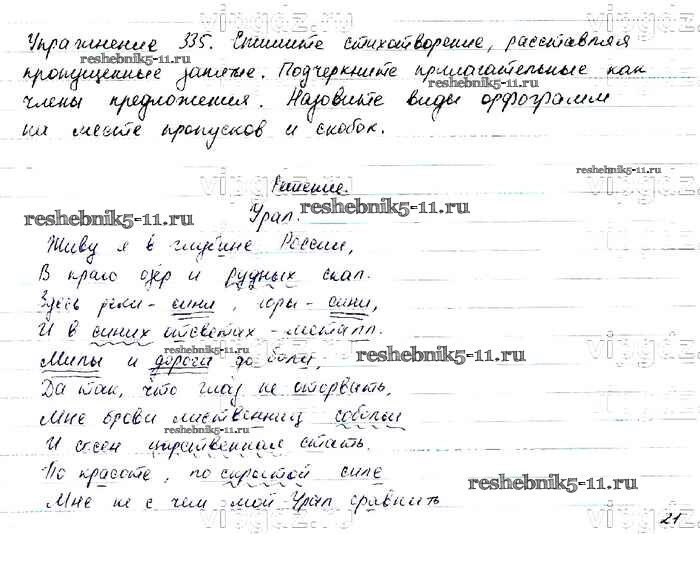 Упражнение 335. Спишите стихотворение, расставляя
пропущенные запятые. Подчеркните прилагательные как
reshebnik5-11.ru
члены предложения. Назовите виды орфограмм
на месте пропусков и скобок.
reshebnik5-11.ru
Решение.
reshebnik5-11.ru
Урал.
reshebnik5-11.ru
Живу я в глубине России,
В краю озёр и рудных скал.
Здесь реки - сини, горы - сини,
И в синих отсветах - металл.
reshebnik5-11.ru
Милы и дороги до боли,
reshebnik5-11.ru
Да так, что глаз не оторвать,
Мне брови лиственниц собольи
reshebnik5-11.ru
И сосен царственная стать.
По красоте, по скрытой силе
reshebnik5-11.ru
Мне не с чем мой Урал сравнить
21